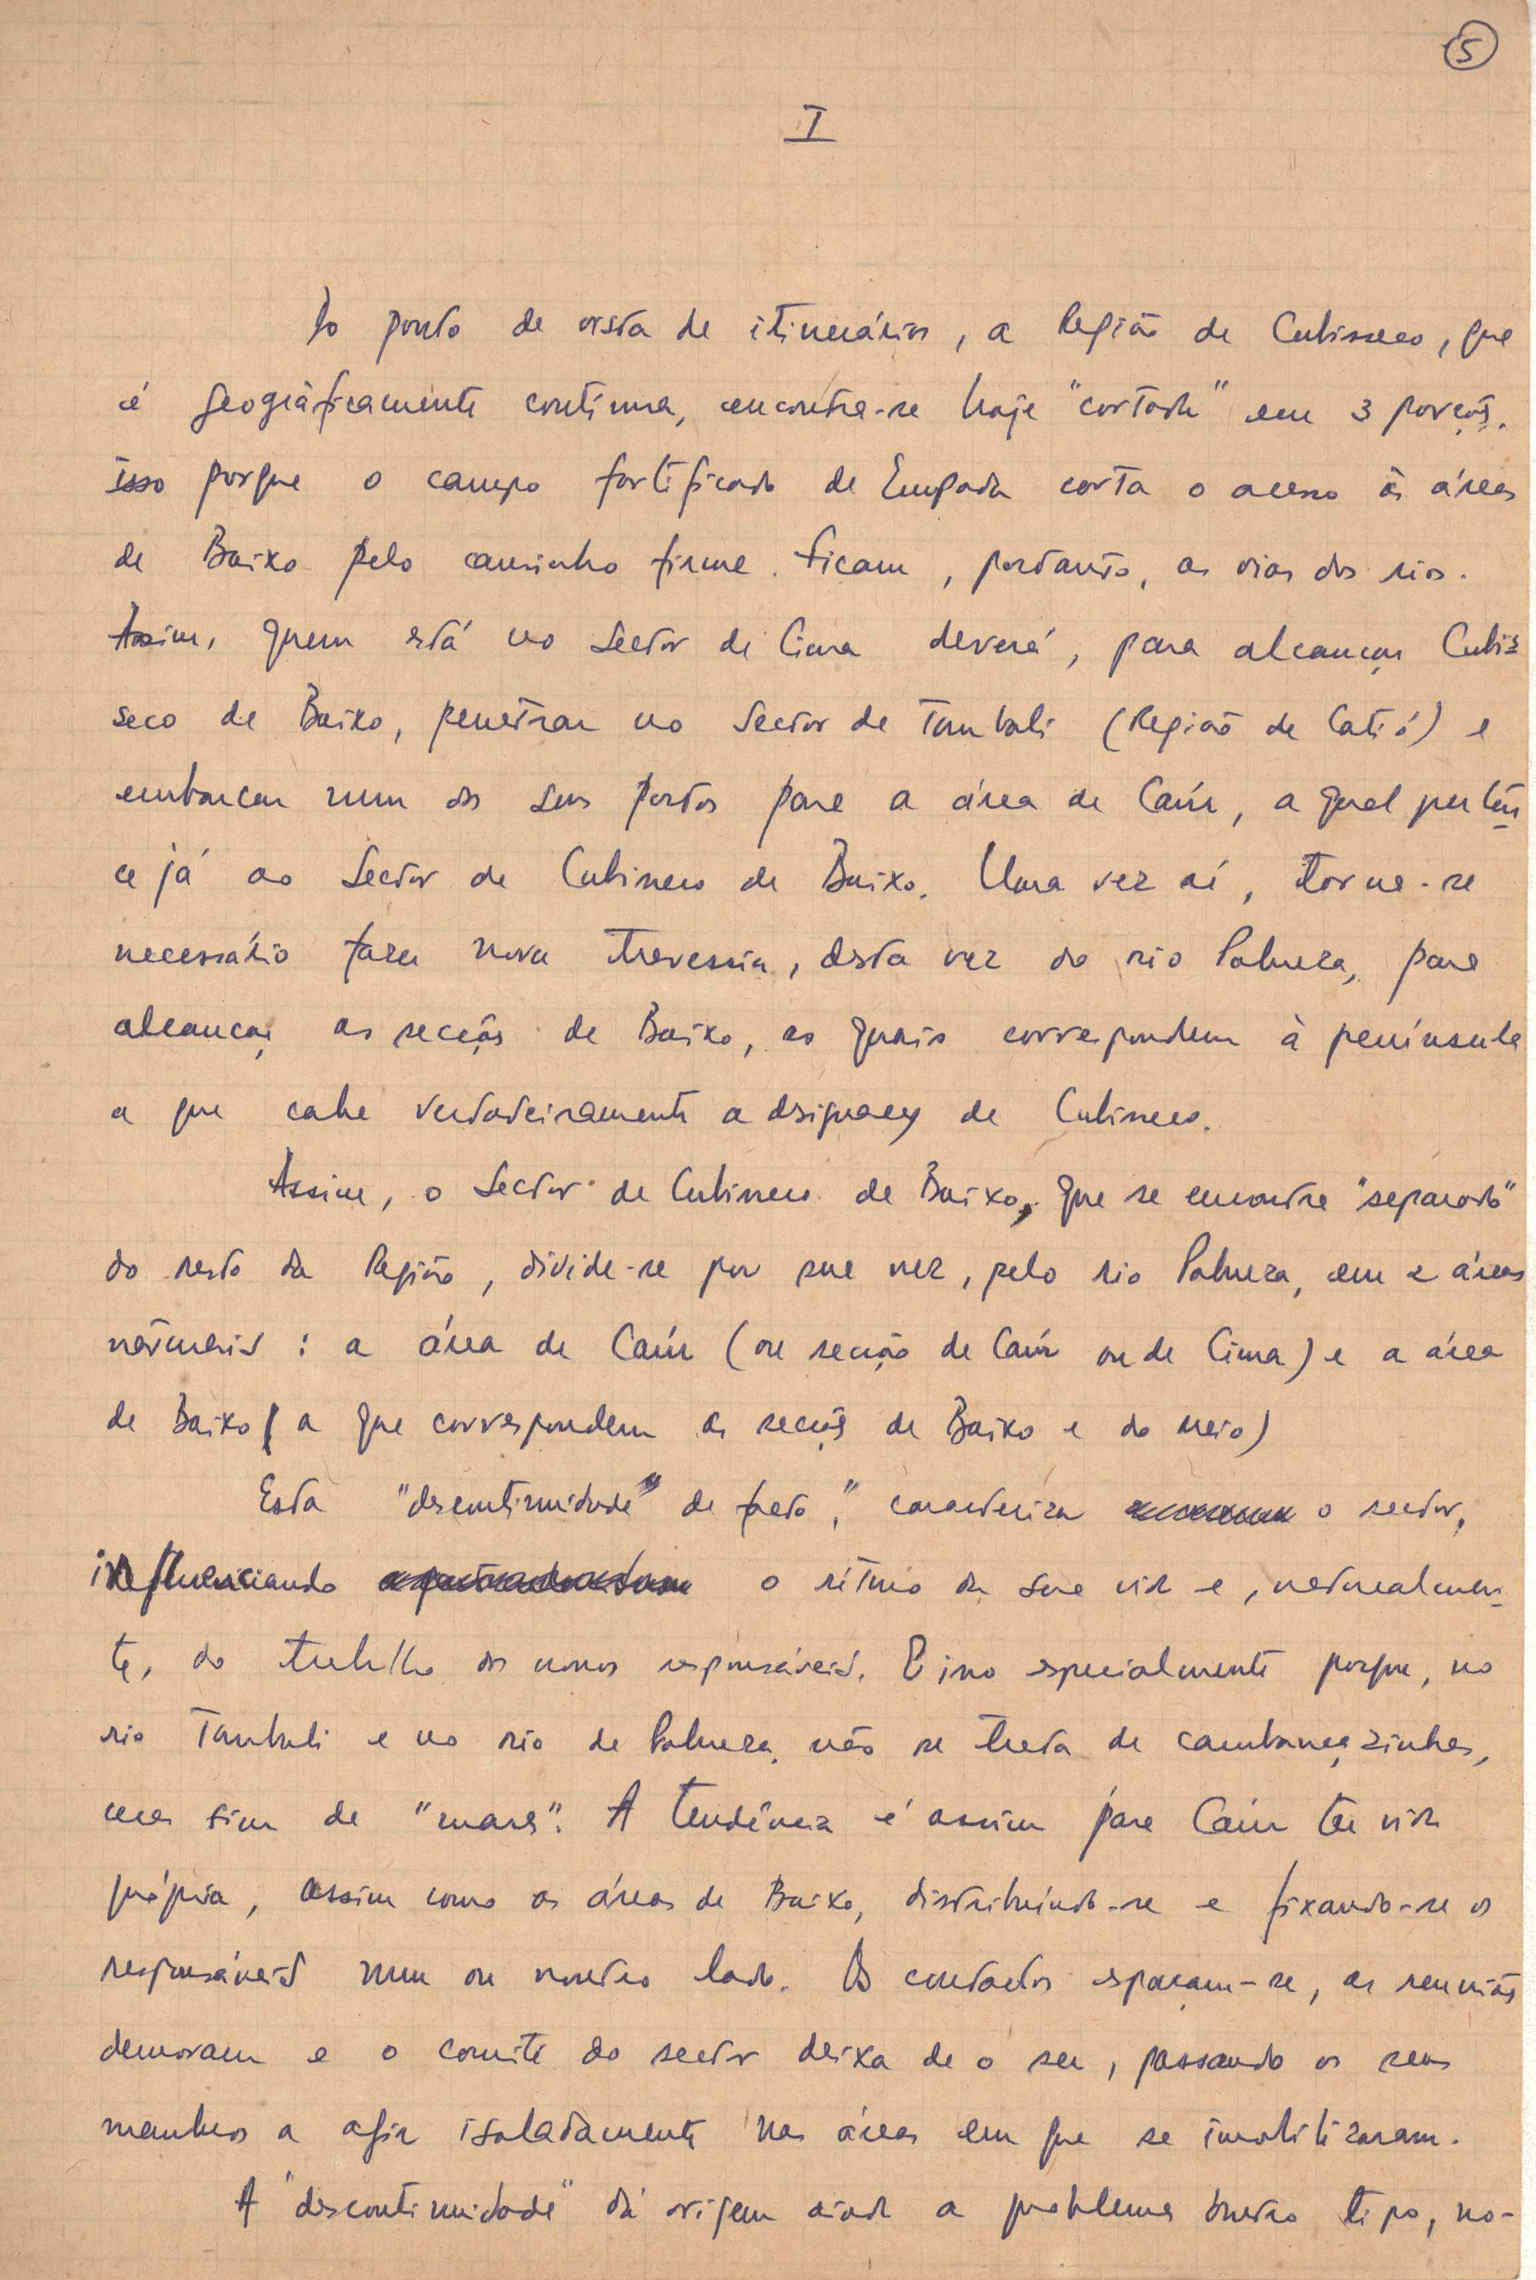 5
I
Do ponto de vista de itinerários, a Região de Cubisseco, que
é geogràficamente contínua, encontra-se hoje "cortada" em 3 porções.
isso porque o campo fortificado de Empada corta o acesso às áreas
de Baixo pelo caminho firme. Ficam, portanto, as vias dos rios.
Assim, quem está no Sector de Cima deverá, para alcançar Cubis-
seco de Baixo, penetrar no Sector de Tombali (Região de Catió) e
embarcar num dos seus portos para a área de Caúr, a qual perten-
ce já ao Sector de Cubisseco de Baixo. Uma vez aí, torna-se
necessário fazer nova travessia, desta vez do rio Pobreza, para
alcançar as secções de Baixo, as quais correspondem à península
a que cabe verdadeiramente a designação de Cubisseco.
Assim, o Sector de Cubisseco de Baixo, que se encontra "separado"
do resto da Região, divide-se por sua vez, pelo rio Pobreza, em 2 áreas
naturais: a área de Caúr (ou secção de Caúr ou de Cima) e a área
de Baixo (a que correspondem as secções de Baixo e do meio)
Esta "descontinuidade" de facto," caracteriza o sector,
influenciando o ritmo da sua vida e, naturalmen-
te, do trabalho dos nossos responsáveis. E isso especialmente porque, no
rio Tombali e no rio de Pobreza, não se trata de cambançazinhas,
mas sim de "mares". A tendência é assim para Caúr ter vida
própria, assim como as áreas de Baixo, distribuíndo-se e fixando-se os
responsáveis num ou noutro lado. Os contactos espaçam-se, as reuniões
demoram e o comité do sector deixa de o ser, passando os seus
membros a agir isoladamente nas áreas em que se imobilizaram.
A "descontinuidade" dá origem ainda a problemas doutro tipo, no-